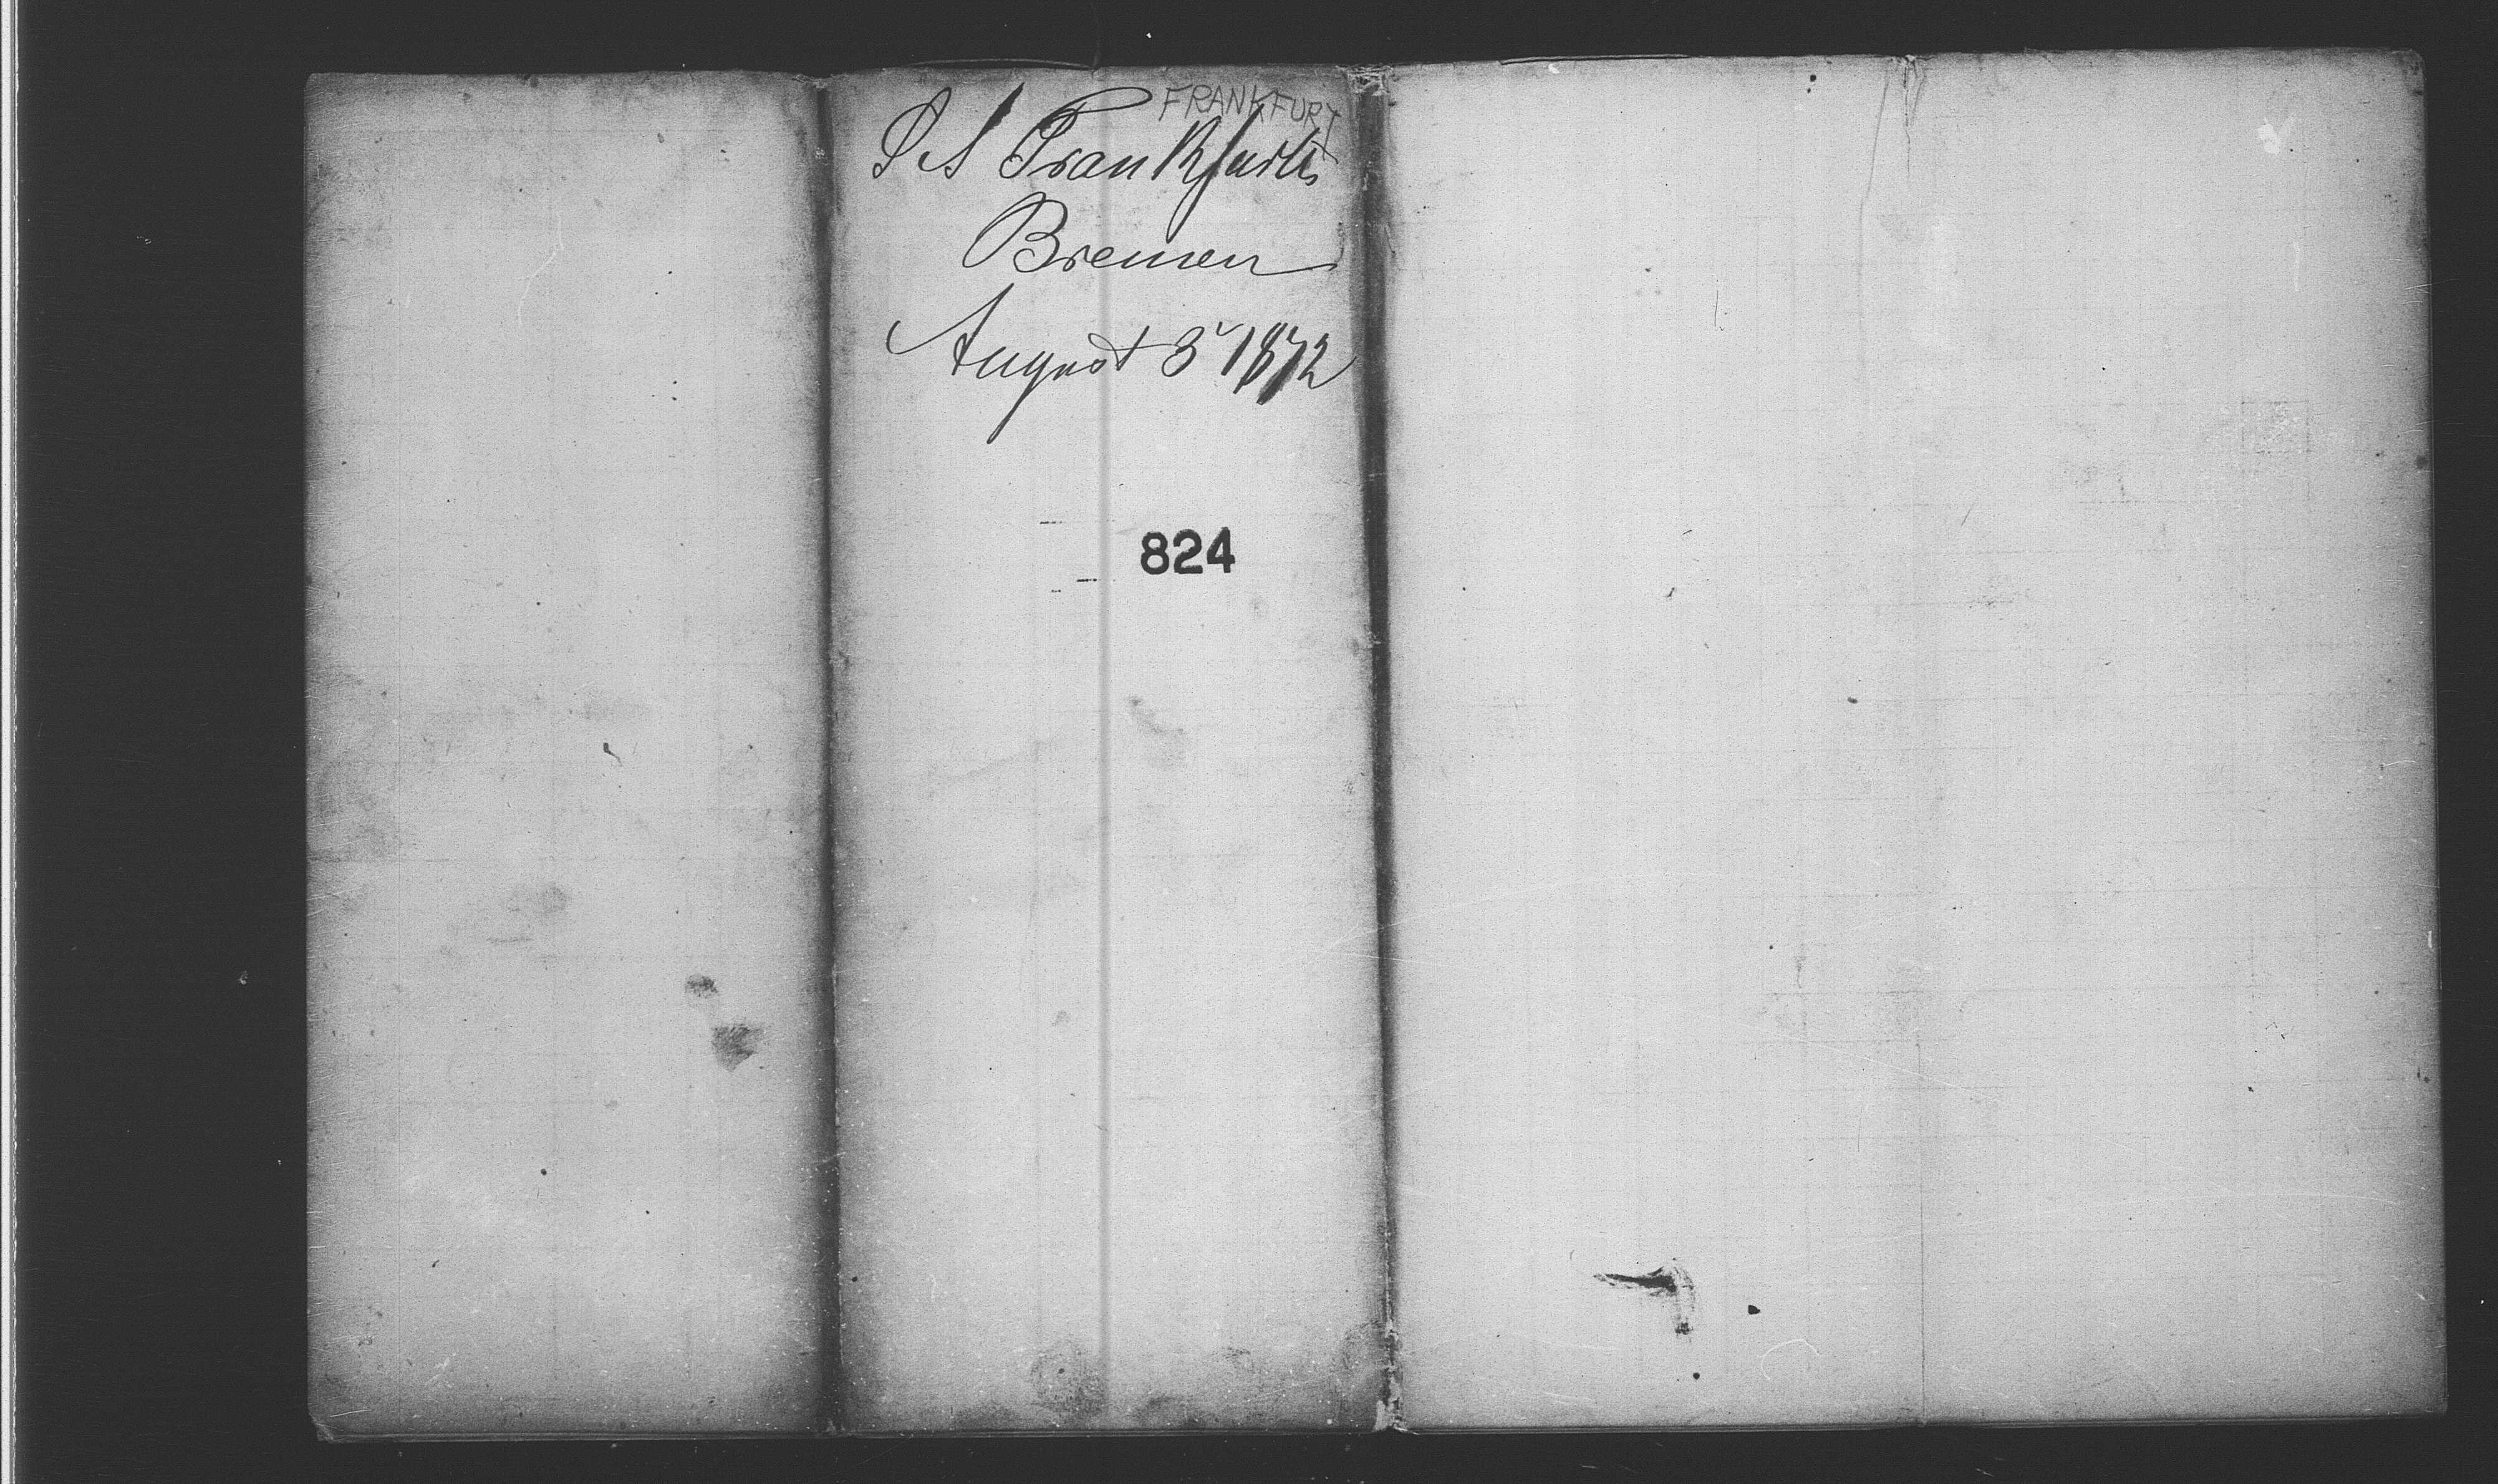 FRANKFURT
SS Frankfurth
Bremen
August 3 1872
824